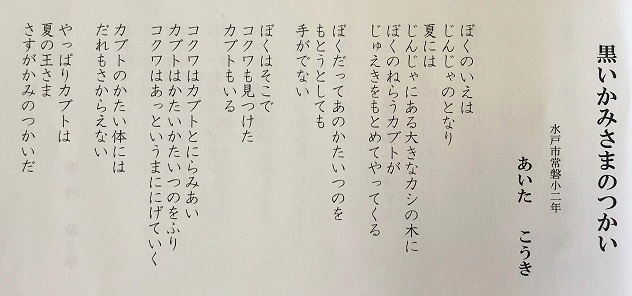 黒いかみさまのつかい
水戸市常磐小二年
あいた　こうき
ぼくのいえは
じんじゃのとなり
夏には
じんじゃにある大きなカシの木に
ぼくのねらうカブトが
じゅえきをもとめてやってくる
ぼくだってあのかたいつのを
もとうとしても
手がでない
ぼくはそこで
コクワも見つけた
カブトもいる
コクワはカブトとにらみあい
カブトはかたいかたいつのをふり
コクワはあっというまににげていく
カブトのかたい体には
だれもさからえない
やっぱりカブトは
夏の王さま
さすがかみのつかいだ